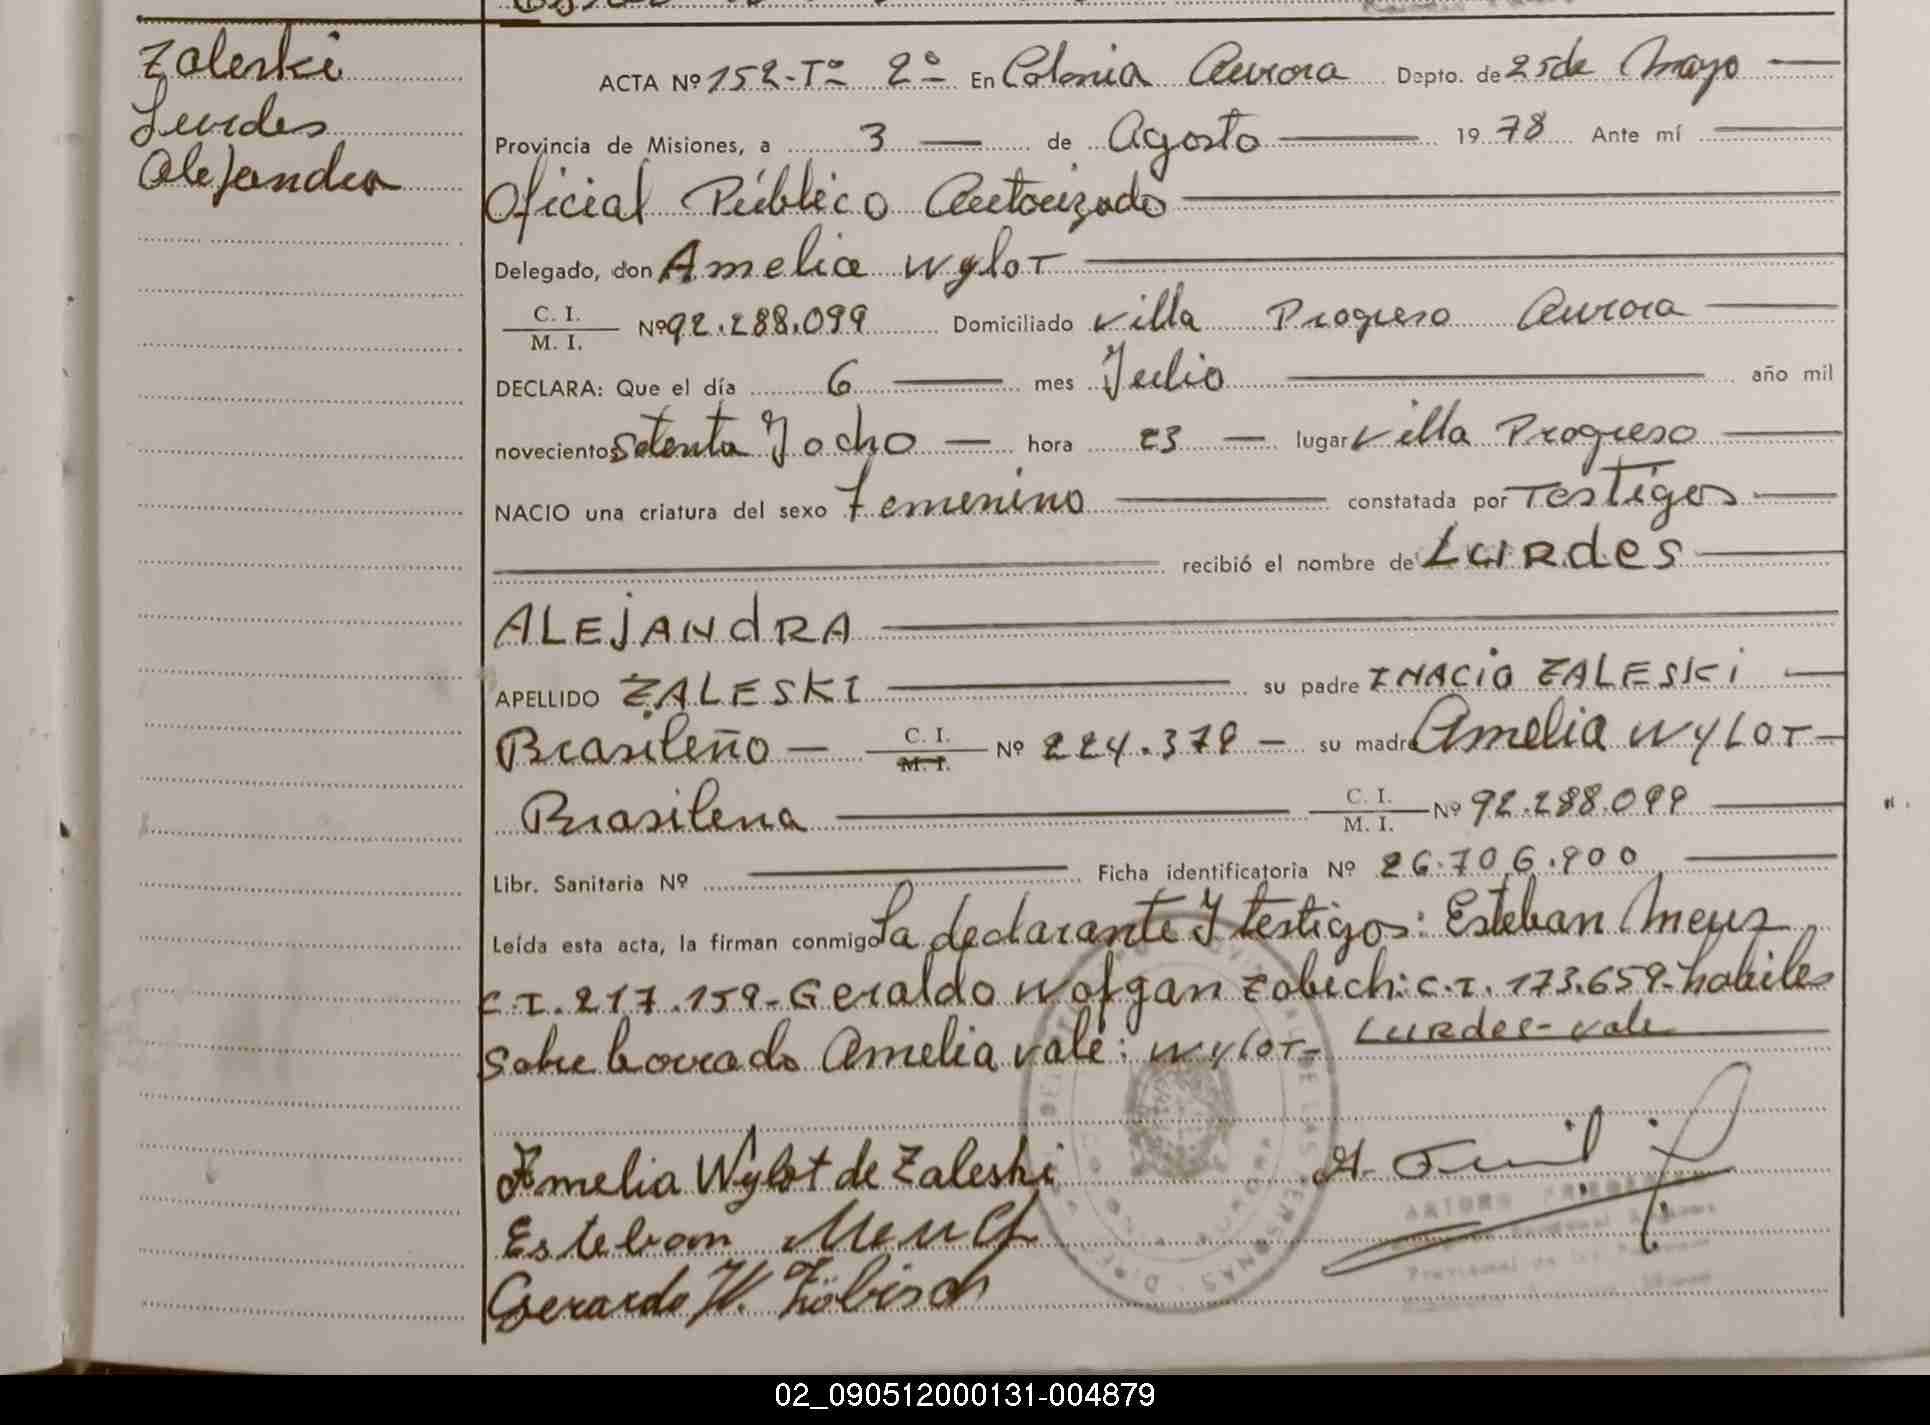 Zaleski
Lurdes
Alejandra
ACTA Nº 152-Tº 2º En Colonia Aurora Depto. de 25 de Mayo
Provincia de Misiones, a 3 de Agosto 1978 Ante mí
Oficial Público Autorizado
Delegado, don Amelia Wylot
C. I. / M. I. Nº 92.288.099 Domiciliado Villa Progreso Aurora
DECLARA: Que el día 6 mes Julio año mil
novecientos setenta y ocho hora 23 lugar Villa Progreso
NACIO una criatura del sexo Femenino constatada por Testigos
recibió el nombre de Lurdes
ALEJANdRA
APELLIDO ZALESKI su padre INACIO ZALESKI
Brasileño C. I. / M. I. Nº 224.379 su madre Amelia WYLOT
Brasilena C. I. / M. I. Nº 92.288.099
Libr. Sanitaria Nº Ficha identificatoria Nº 26.706.900
Leída esta acta, la firman conmigo La declarante y testigos: Esteban Meuz
C.I. 217.159-Geraldo Wofgan Zobich: C.I. 173.659-habiles
Sobre borrado Amelia vale: Wylot- Lurdes-vale
Amelia Wylot de Zaleski
Esteban
Gerardo W. Zöbisch
02_090512000131-004879